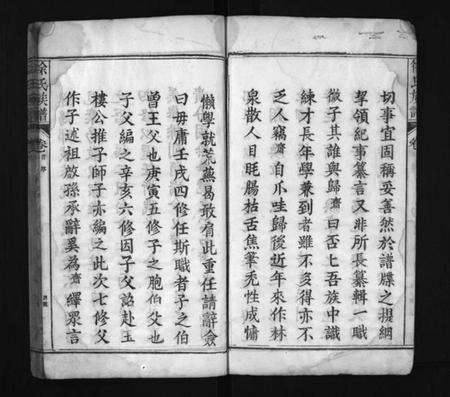 切事宜固稱妥善然於譜牒之提綱
挈領紀事纂言又非所長纂輯一職
微子其誰與歸齋曰否七吾族中識
練才長年學兼到者雖不多得亦不
乏人竊齋自瓜哇歸後近年來作林
泉散人目眊腸枯舌焦筆禿性成慵
懶學就荒蕪曷敢肩此重任請辭僉
曰毋庸壬戌四修任斯職者子之伯
曾王父也庚寅五修子之胞伯父也
子父編之辛亥六修因子父詒赴玉
樓公推子師子亦編之此次七修父
作子述祖啟孫承辭奚為齋繹眾言
徐氏族譜
卷首